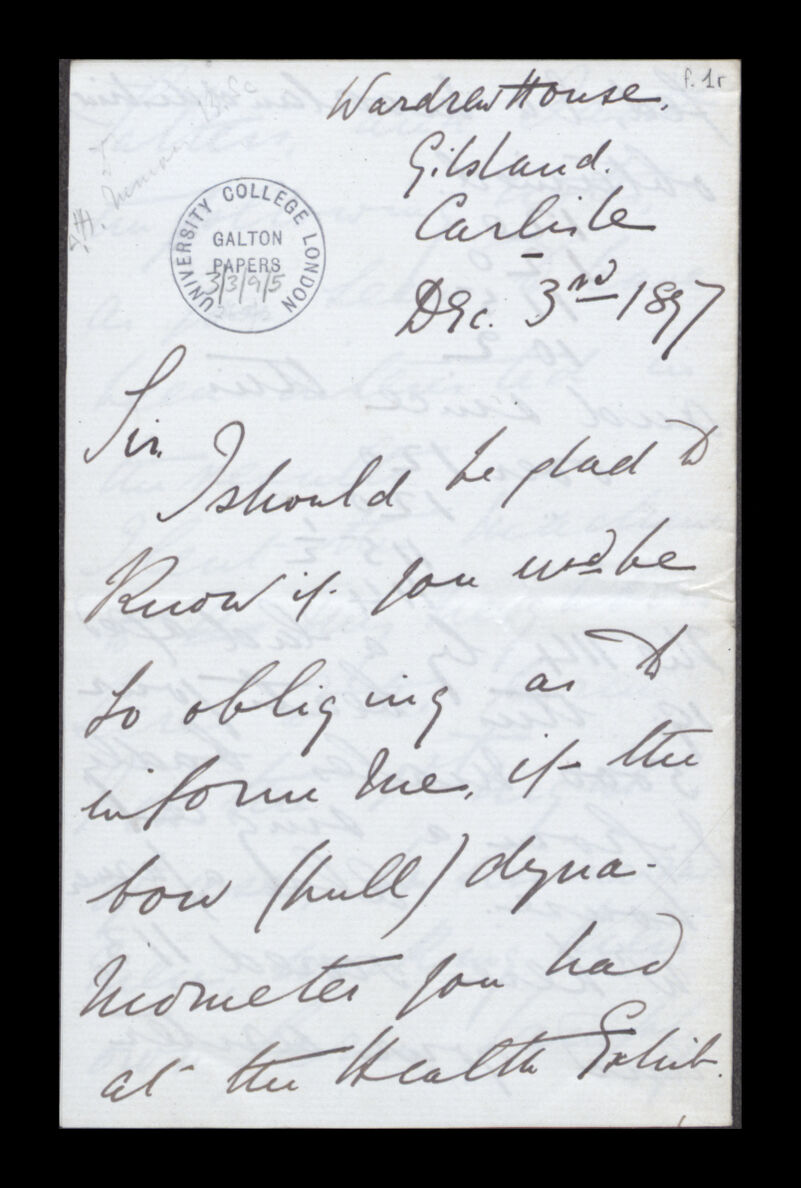 f. 1r
Wardrew House.
Gilsland.
Carlisle
UNIVERSITY COLLEGE LONDON
GALTON
PAPERS
3/3/9/5
Dec. 3rd 1897
Sir.
I should be glad to
Know if you wd be
so obliging as to
inform me, if the
bow (pull) dyna-
mometer you had
at the Health Exhib.